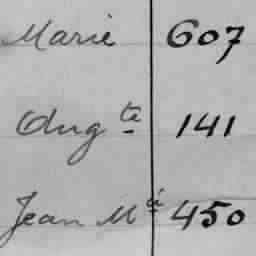 Marie 607
Aug te 141
Jean M é 450